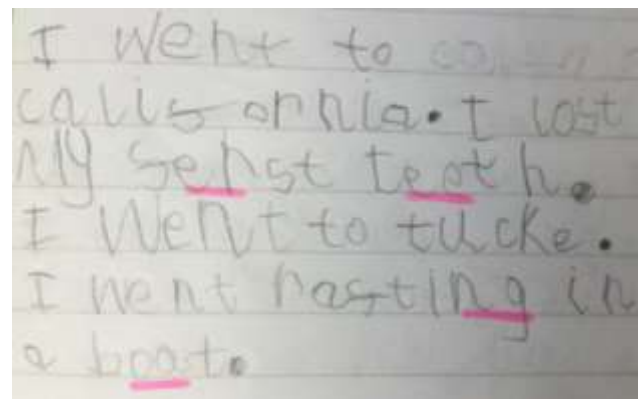 I went to ca
califor nia. I lost
My ferst teoth.
I Went to tucke.
I went rafting in
a boat.